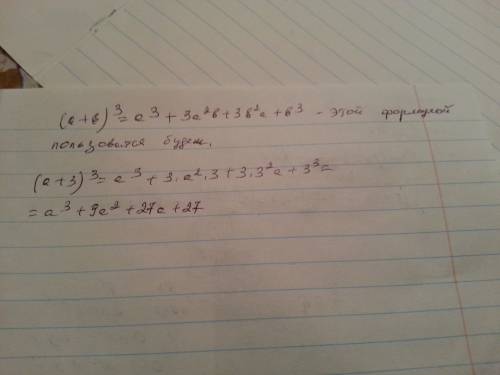 (a+b)³ = a³ + 3a²b + 3b²a + b³ - этой формулой
пользоватся будем.
(a+3)³ = a³ + 3·a²·3 + 3·3²a + 3³ =
= a³ + 9a² + 27a + 27